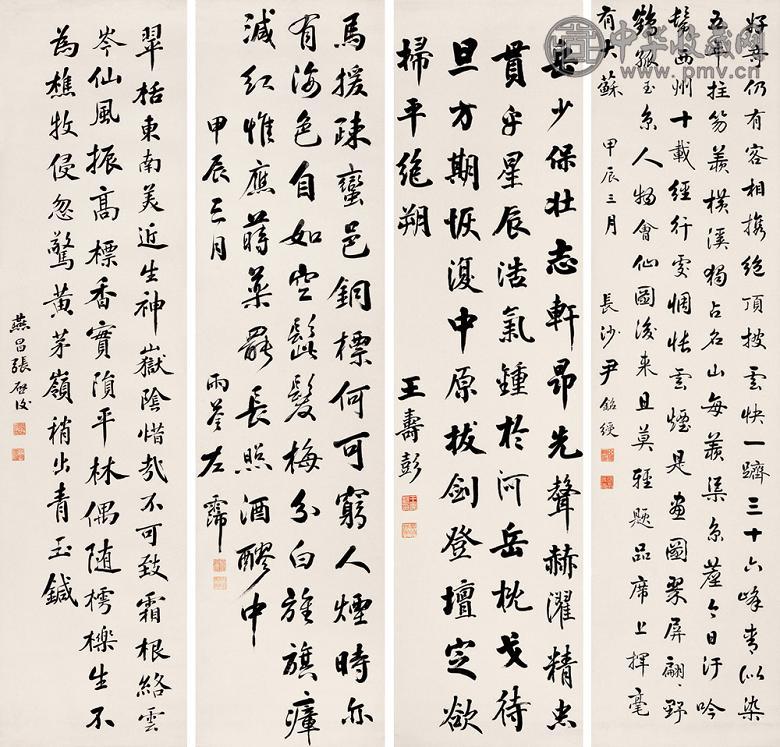 好奇仍有客相攜絶頂披雲快一躋三十六峰青似染
五年拄笏羨橫溪獨占名山每羨渠京塵今日汙吟
鬢西州十載經行處惆悵雲煙是畫圖翠屏翩翩野
鶴孤玉京人物會仙圖後來且莫輕題品席上揮毫
有大蘇 甲辰三月 長沙尹銘綬
岳少保壯志軒昂先聲赫濯精忠
貫乎星辰浩氣鍾於河岳枕戈待
旦方期恢復中原拔劍登壇定欲
掃平絶朔 王壽彭
馬援疎蠻邑銅標何可窮人煙時亦
有海色自如空髭髮梅分白旌旗瘴
減紅惟應蒔藥罷長照酒醪中
甲辰三月 雨荃左霈
翠栝東南美近生神嶽陰惜哉不可致霜根絡雲
岑仙風振高標香實隕平林偶随樗櫟生不
為樵牧侵忽驚黃茅嶺稍出青玉鍼
燕昌張啓後
中华收藏网
www.pmv.cn